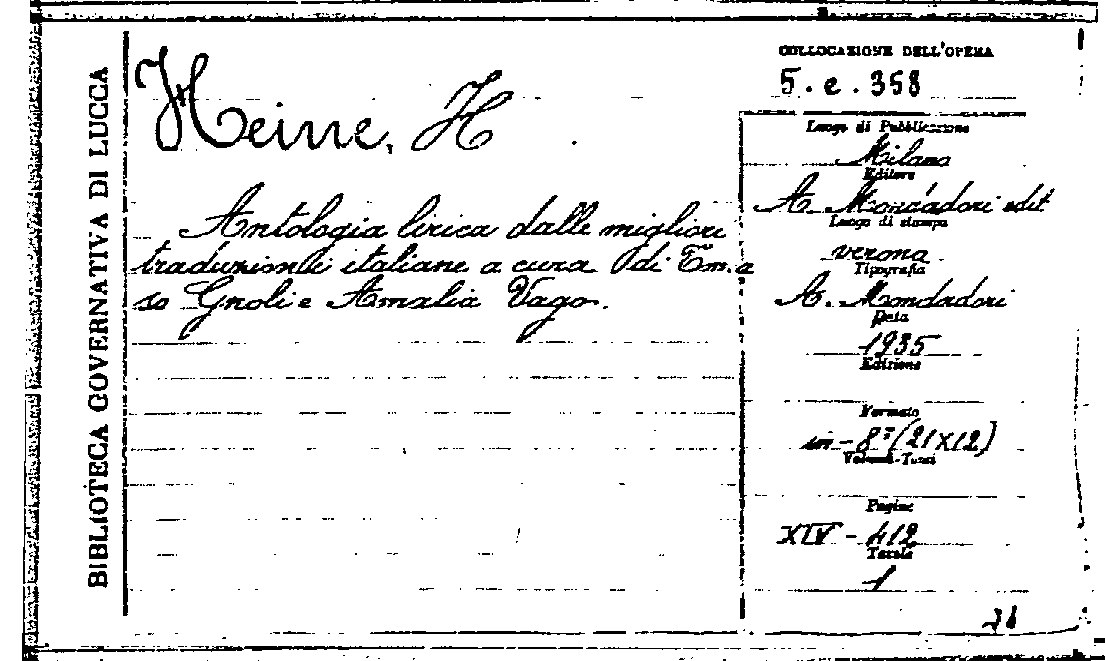 BIBLIOTECA GOVERNATIVA DI LUCCA
Heine, H.
Antologia lirica dalle migliori
traduzioni italiane a cura di Tom.a
so Gnoli e Amalia Vago.
COLLOCAZIONE DELL'OPERA
5.e.358
Luogo di Pubblicazione
Milano
Editore
A. Mondadori edit
Luogo di stampa
verona
Tipografia
A. Mondadori
Data
1935
Edizione
Formato
in-8° (21X12)
Volumi-Tomi
Pagine
XIV - 412
Tavole
1